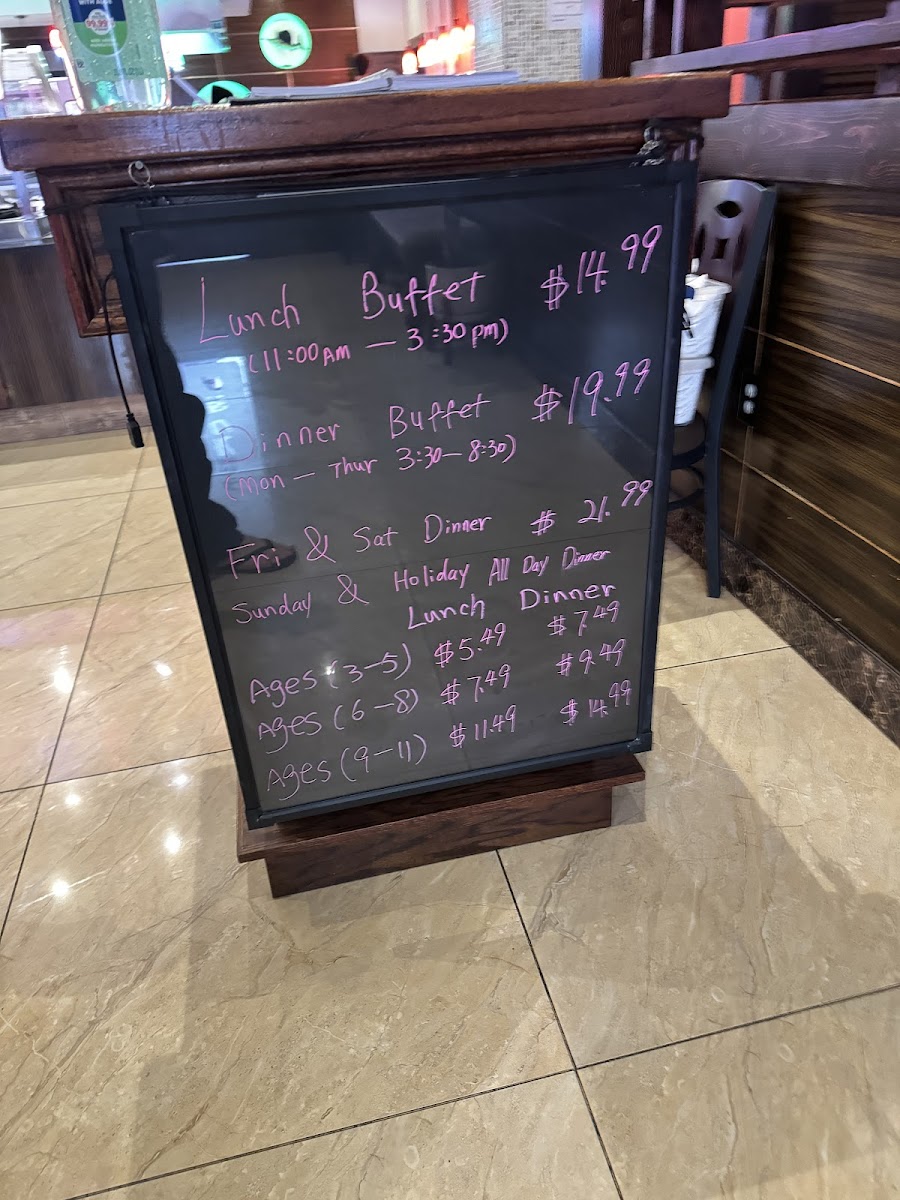 99.99
Lunch Buffet $14.99
(11:00AM — 3:30pm)
Dinner Buffet $19.99
(Mon — Thur 3:30— 8:30)
Fri & Sat Dinner $21.99
Sunday & Holiday All Day Dinner
Lunch Dinner
Ages (3-5) $5.49 $7.49
Ages (6-8) $7.49 $9.49
Ages (9-11) $11.49 $14.99